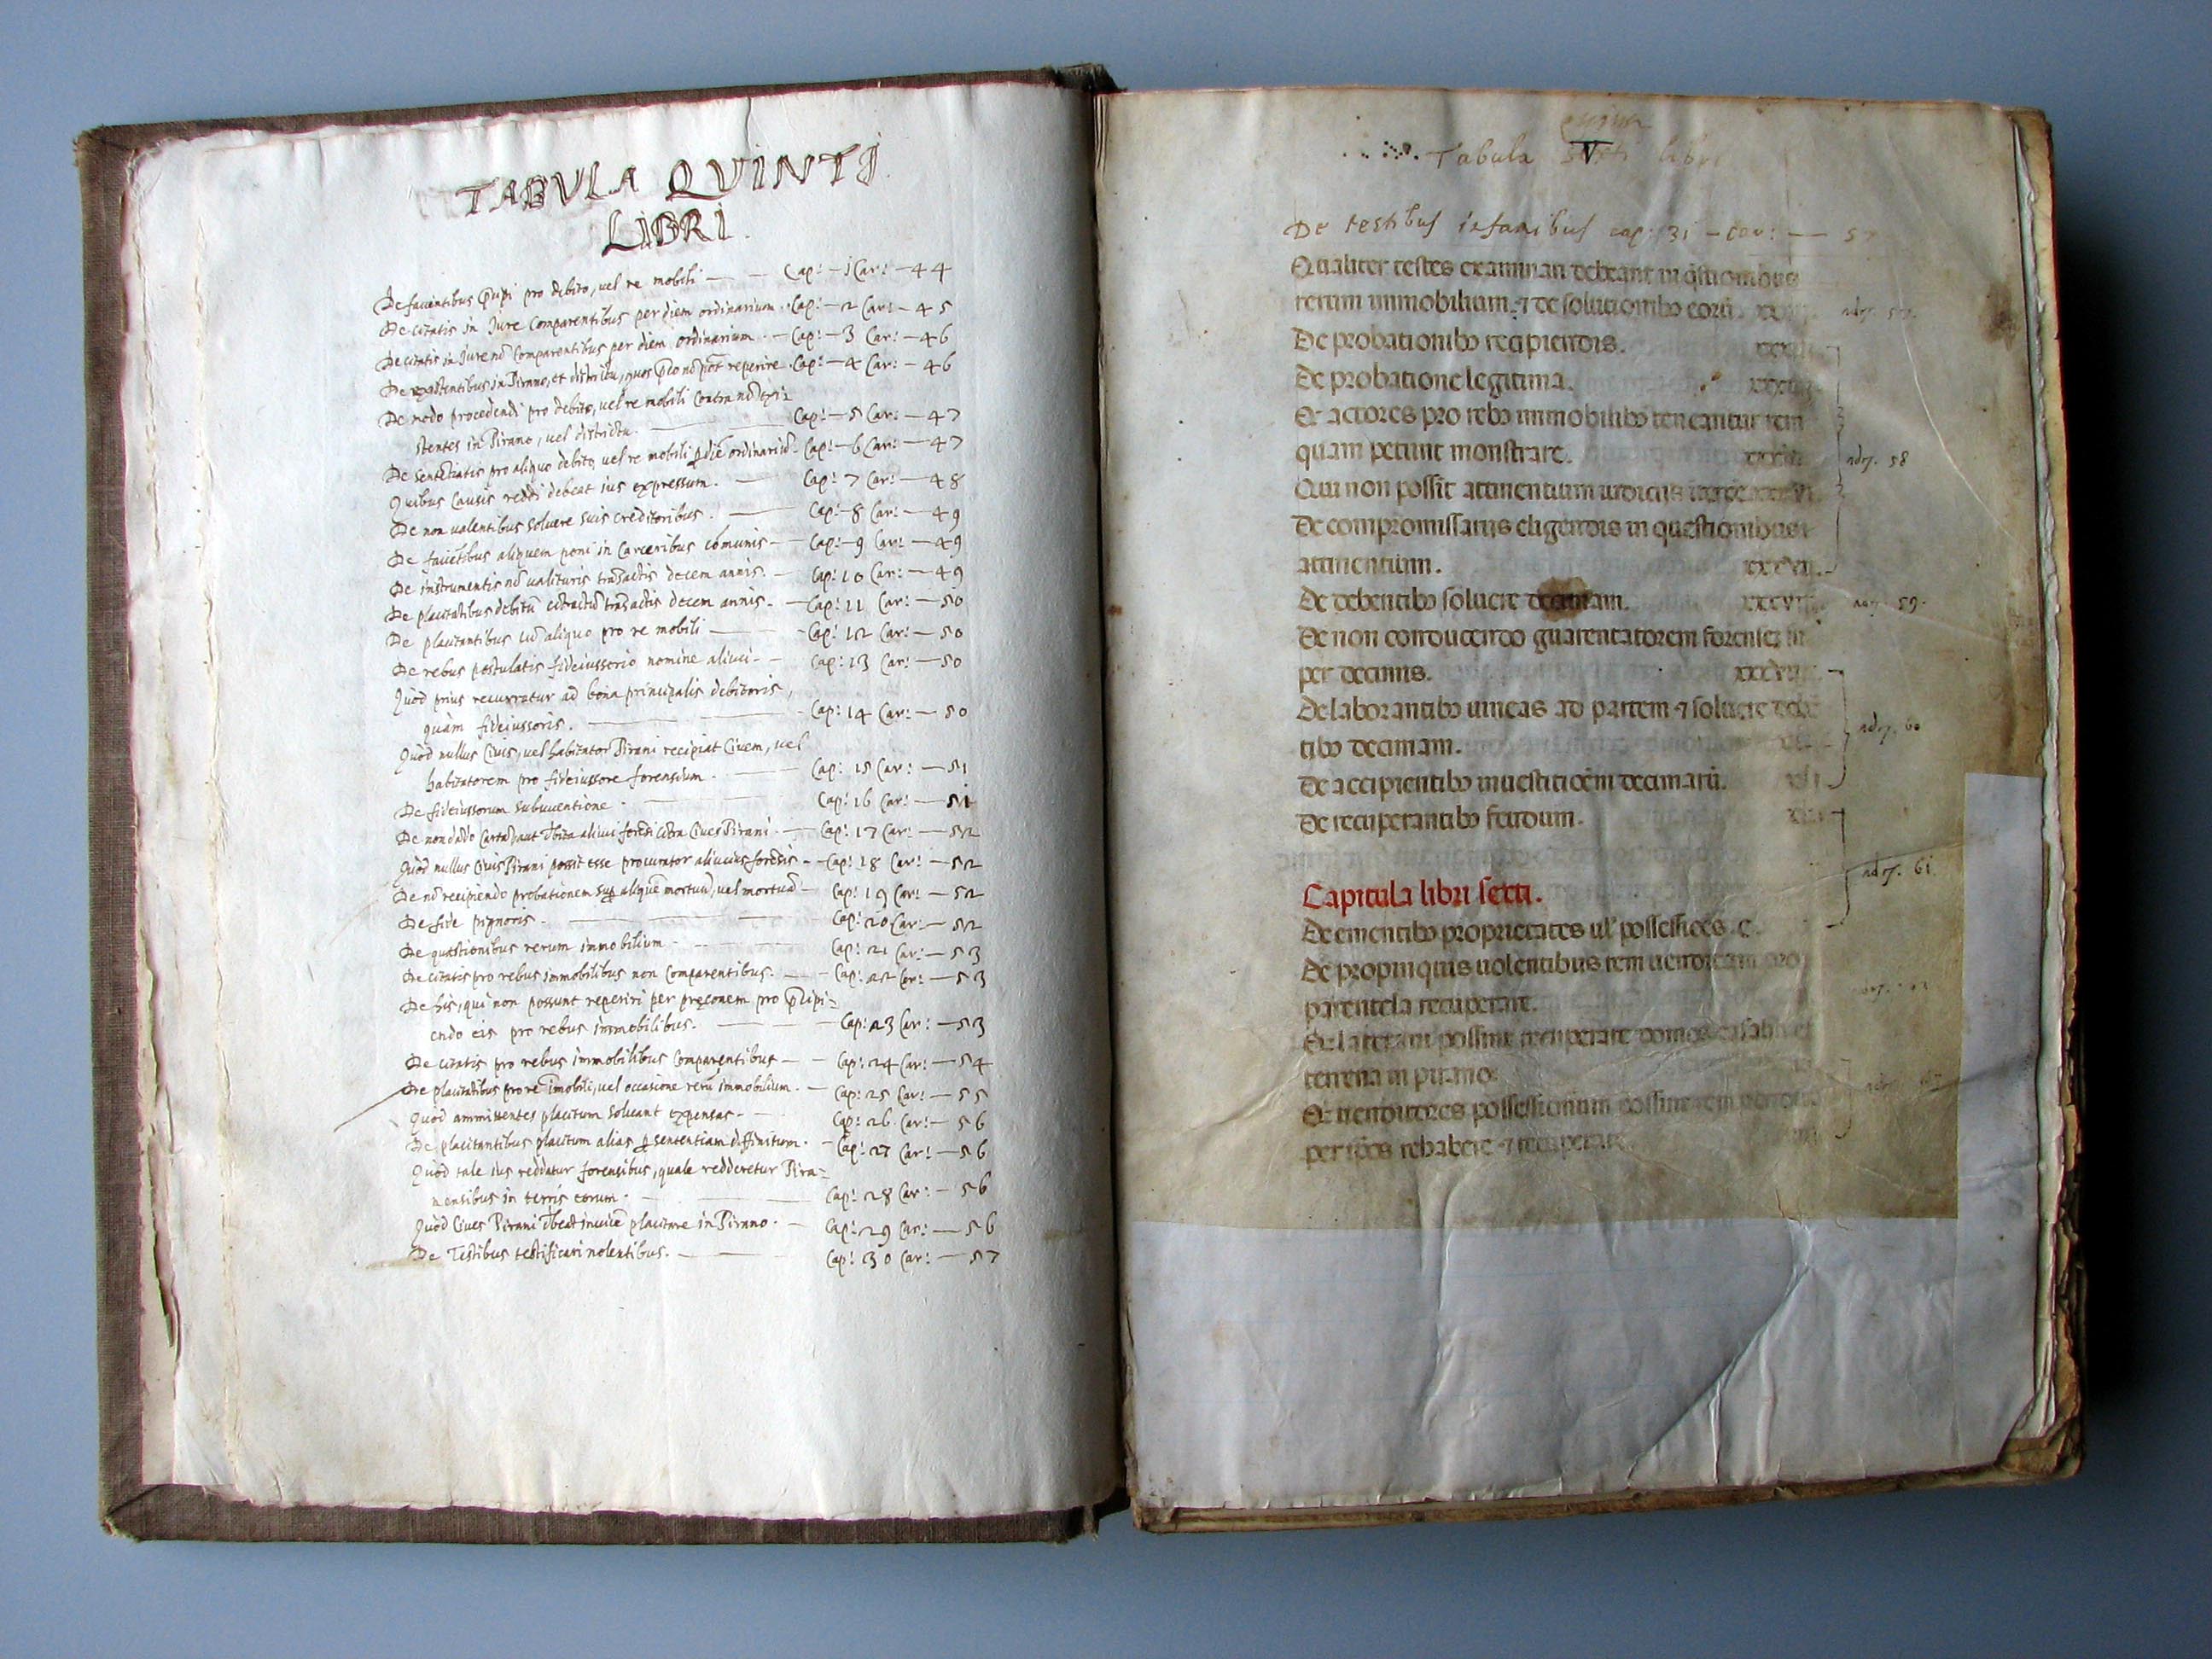 TABVLA QVINTJ
LIBRI.
De facientibus p̄cipi pro debito, uel re mobili — Cap: — 1 Car: — 44
De citatis in Jure Comparentibus per diem ordinarium. Cap: — 2 Car: — 45
De citatis in Jure nō Comparentibus per diem ordinarium. — Cap: — 3 Car: — 46
De existentibus in Pirano, et districtu, quos p̄co nō pōt reperire. Cap: — 4 Car: — 46
De modo procedendi pro debito, uel re mobili Contra nō exi-
stentes in Pirano, uel districtu. — Cap: — 5 Car: — 47
De sententiatis pro aliquo debito, uel re mobili p diē ordinariū. Cap: — 6 Car: — 47
Quibus Causis reddi debeat ius expressum. — Cap: 7 Car: — 48
De non ualentibus soluere suis creditoribus. — Cap: — 8 Car: — 49
De faciētibus aliquem poni in Carceribus cōmunis — Cap: — 9 Car: — 49
De instrumentis nō ualituris trāsactis decem annis. — Cap: 10 Car: — 49
De placitātibus debitū cōtractū trāsactis decem annis. — Cap: 11 Car: — 50
De placitantibus cū aliquo pro re mobili — Cap: 12 Car: — 50
De rebus postulatis fideiussorio nomine alicui. — Cap: 13 Car: — 50
Quod prius recurratur ad bona principalis debitoris,
quàm fideiussoris. — Cap: 14 Car: — 50
Quòd nullus Ciuis, uel habitator Pirani recipiat Ciuem, uel
habitatorem pro fideiussore forensium. — Cap: 15 Car: — 51
De fideiussorum subuentione. — Cap: 16 Car: — 51
De non dādo Cartā, aut debita alicui forēsi cōtra Ciues Pirani. — Cap: 17 Car: — 52
Quòd nullus Ciuis Pirani possit esse procurator alicuius forēsis — Cap: 18 Car: — 52
De nō recipiendo probationem sup aliquē mortuū, uel mortuā — Cap: 19 Car: — 52
De fide pignoris. — Cap: 20 Car: — 52
De quæstionibus rerum immobilium — Cap: 21 Car: — 53
De citatis pro rebus immobilibus non Comparentibus. — Cap: 22 Car: — 53
De his, qui non possunt reperiri per pręconem pro p̄cipi-
endo eis pro rebus immobilibus. — Cap: 23 Car: — 53
De citatis pro rebus immobilibus Comparentibus — Cap: 24 Car: — 54
De placitātibus pro re imobili, uel occasione rerū immobilium. — Cap: 25 Car: — 55
Quòd ammittentes placitum soluant expensas. — Cap: 26 Car: — 56
De placitantibus placitum alias p sententiam diffinitum. — Cap: 27 Car: — 56
Quòd tale ius reddatur forensibus, quale redderetur Pira-
nensibus in terris eorum. — Cap: 28 Car: — 56
Quòd Ciues Pirani debeāt inuicē placitare in Pirano. — Cap: 29 Car: — 56
De Testibus testificari nolentibus. — Cap: 30 Car: — 57
Tabula V libri
De testibus infamibus cap: 31 — Car: — 57
Qualiter testes examinari debeant in q̄stionibus
rerum immobilium ⁊ de solutionibꝰ eorū
De probationibꝰ recipiendis.
De probatione legitima.
Qꝫ actores pro rebꝰ immobilibꝰ teneantur rem
quam petunt monstrare.
Qui non possit attinentium iudiciis
De compromissariis eligendis in questionibus
attinentium.
De debentibꝰ soluere decimam.
De non conducendo guarentatorem forensem
per decimis.
De laborantibꝰ uineas ad partem ⁊ soluere debē
tibꝰ decimam.
De accipientibꝰ inuestitiōēm decimarū.
De recuperantibꝰ feudum.
Capitula libri sexti.
De ementibꝰ proprietates ul' possessiōes. c.
De propinquis uolentibus rem uenditam pro
parentela recuperare.
Qꝫ laterani possint recuperare domos casalia et
terrena in pirano.
Qꝫ uenditores possessionum possint rem
58
59
60
61